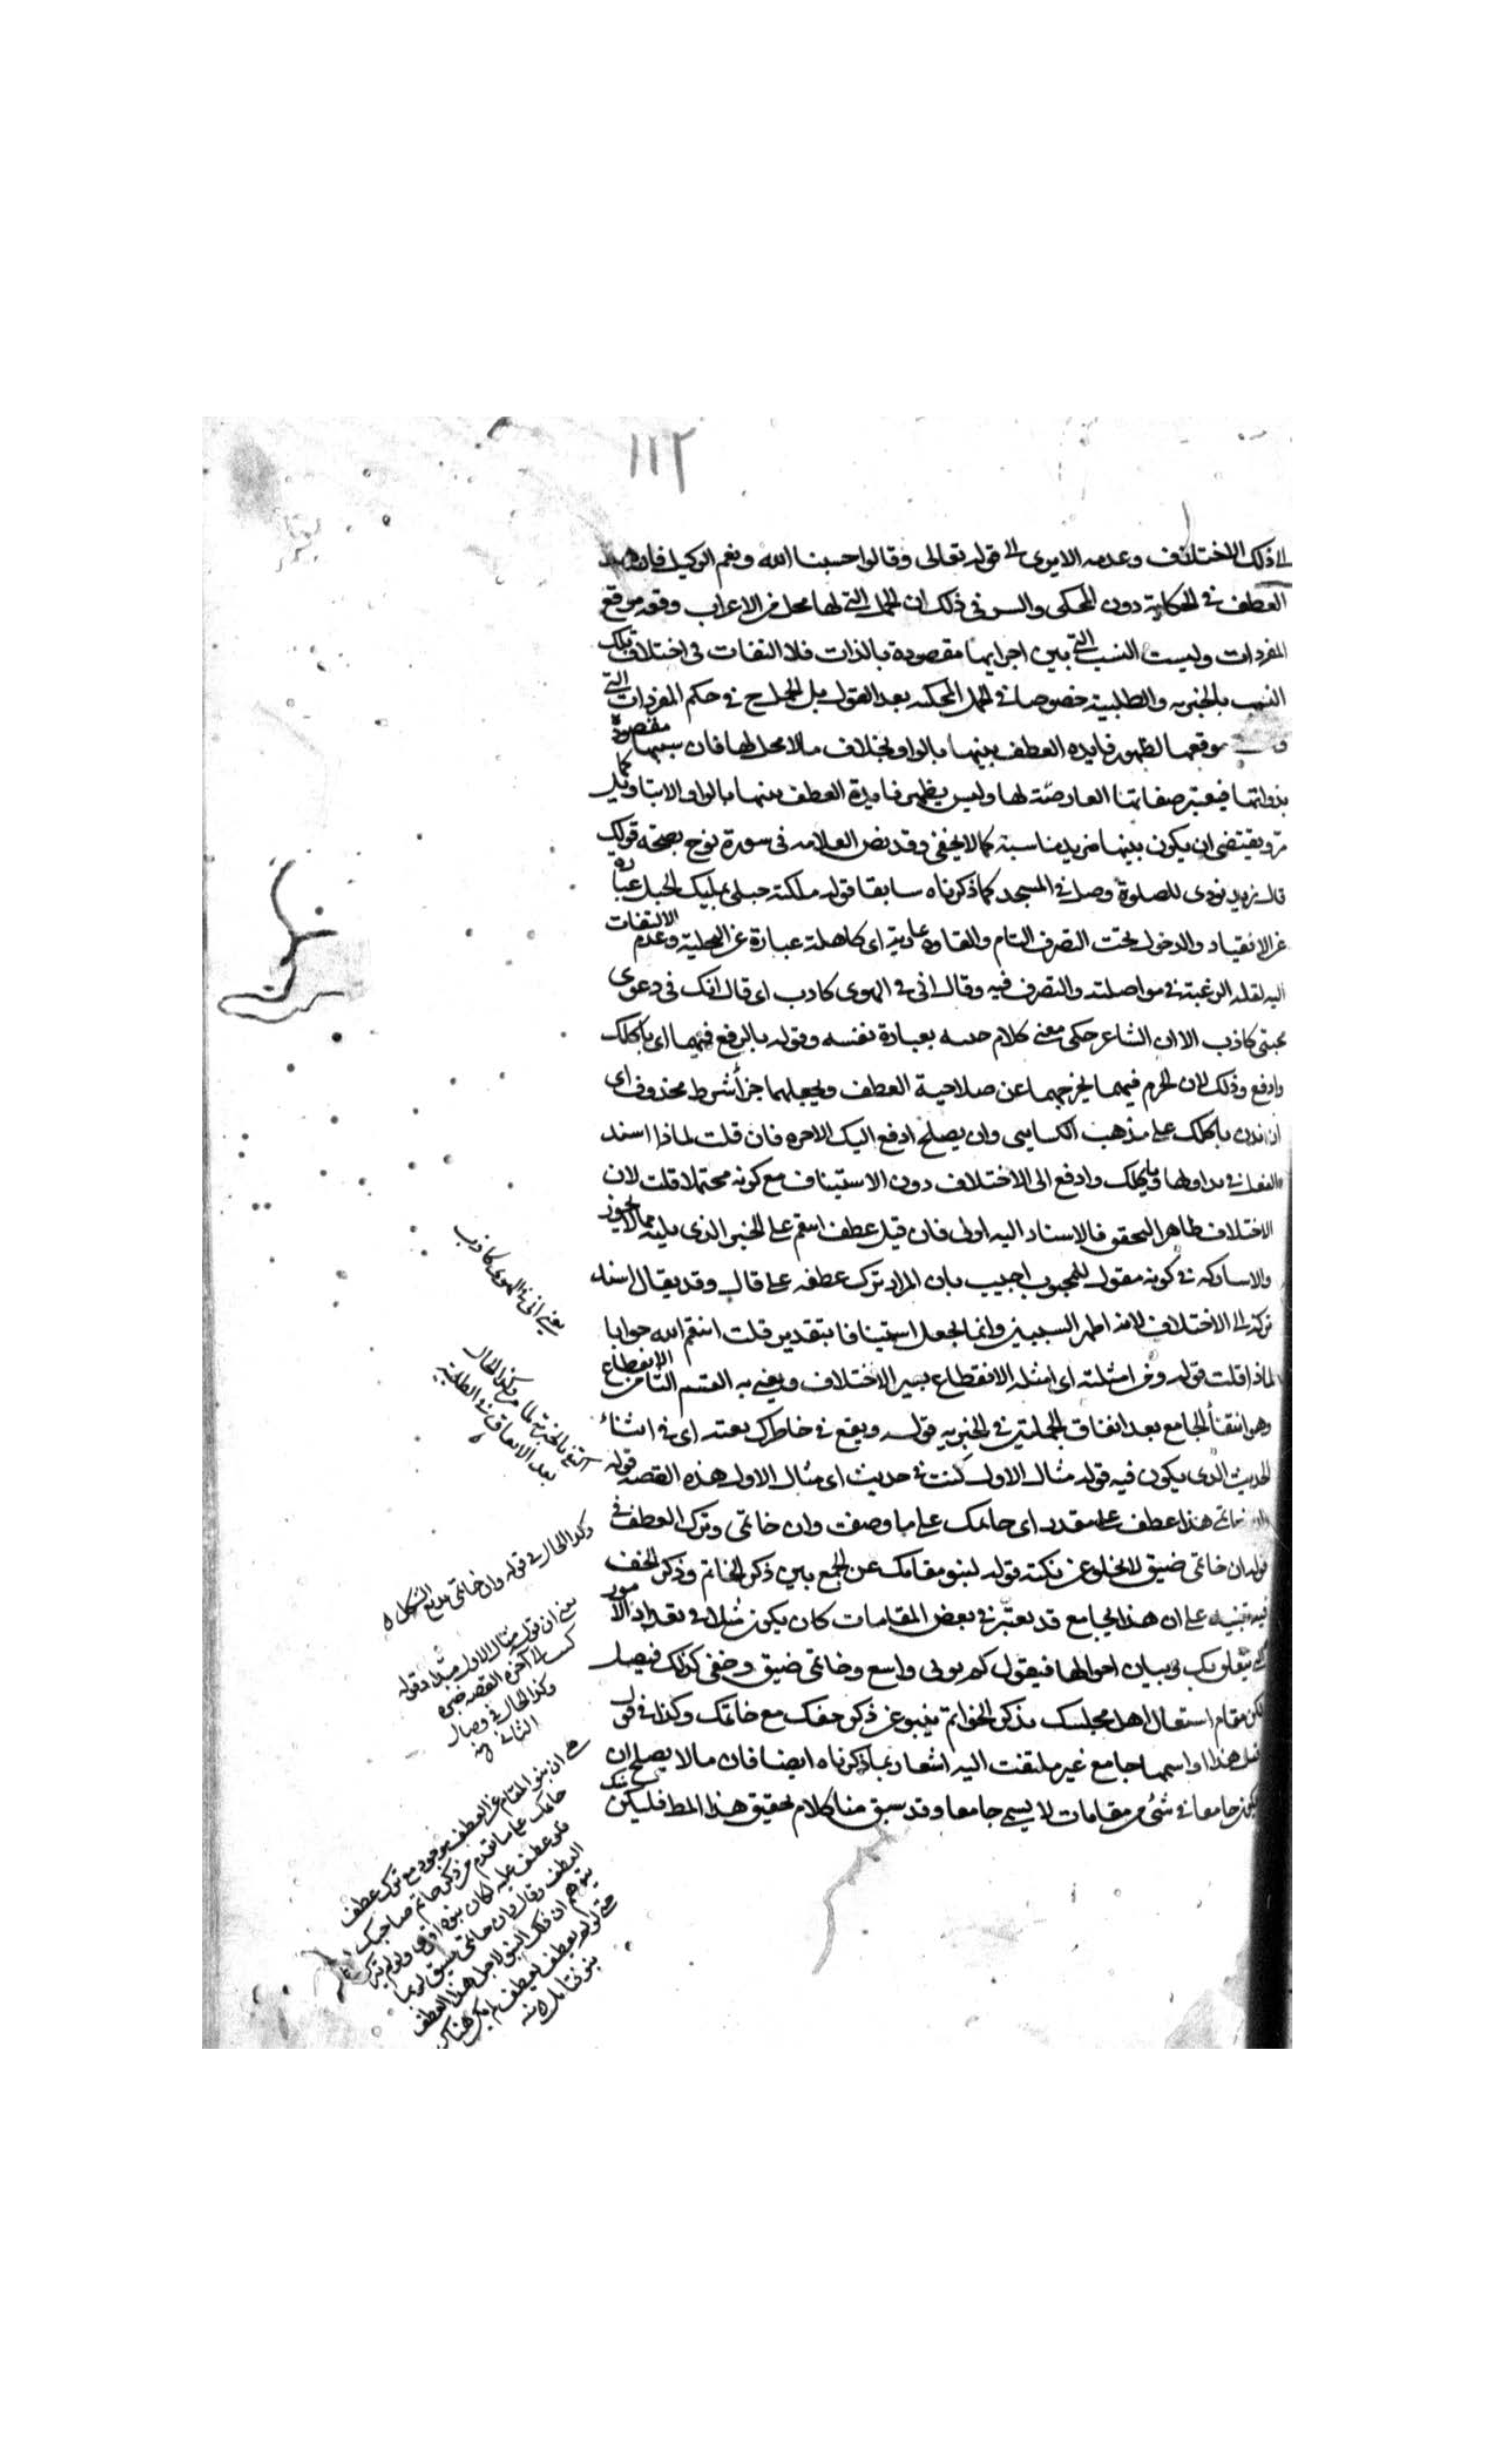 ١١٢
الى ذلك الاختلاف وعدمه الا يرى الى قوله تعالى وقالوا حسبنا الله ونعم الوكيل فان هذا
العطف في الحكاية دون المحكى والسر في ذلك ان الجمل التي لها محل من الاعراب وقعه موقع
المفردات وليست النسب التي بين اجزايها مقصودة بالذات فلا التفات فى اختلاف تلك
النسب بالخبريه والطلبية خصوصا في الجمل المحكيه بعد القول بل الجمل ح في حكم المفردات التي
وقعت موقعها لظهور فايده العطف بينها بالواو بخلاف ما لا محل لها فان نسبها مقصودة
بذواتها فيعتبر صفاتها العارضة لها وليس يظهر فايدة العطف بينها بالواو الا بتاويل كما
مر ويقتضى ان يكون بينها مزيد مناسبة كما لا يخفى وقد نص العلامه فى سورة نوح بصحة قولك
قال زيد نودى للصلوة وصل في المسجد كما ذكرناه سابقا قوله ملكته حبلى تمليك الحبل عبارة
عن الانقياد والدخول تحت التصرف التام والقاوه على غاربه اى كاهله عبارة عن التخلية وعدم الالتفات
اليه لقله الرغبة في مواصلته والتصرف فيه وقال انى في الهوى كاذب اى قال انك فى دعوى
محبتى كاذب الا ان الشاعر حكى معنى كلام حبيبه بعبارة نفسه وقوله بالرفع فيهما اى ياكلك
وادفع وذلك لان الجزم فيهما يخرجهما عن صلاحية العطف ويجعلهما جزأ شرط محذوف اى
ان تدن ياكلك على مذهب الكسايى وان يصلح ادفع اليك الاجره فان قلت لماذا اسند
الفصل في نزاولها وياكلك وادفع الى الاختلاف دون الاستيناف مع كونه محتملا قلت لان
الاختلاف ظاهر التحقق فالاسناد اليه اولى فان قيل عطف انتقم على الخبر الذى يليه مما لا يجوز
والا شاركه في كونه مقول للمحبوب اجيب بان المراد ترك عطفه على قال وقد يقال اسناد
تركه الى الاختلاف لانه اظهر السببين وانما يجعل استينافا بتقدير قلت انتقم الله جوابا
لماذا قلت قوله ومن امثلته اى امثله الانقطاع بغير الاختلاف ويعنى به القسم الثانى من الانقطاع
وهو انتفأ الجامع بعد اتفاق الجملتين في الخبريه قوله ويقع في خاطرك بغته اى في اثناء
الحديث الذى يكون فيه قوله مثال الاول كنت في حديث اى مثال الاول هذه القصه قوله
وان خاتمى هذا عطف على مقدر اى خاتمك على ما وصفت وان خاتمى وترك العطف في
قوله ان خاتمى ضيق لا يخلو عن نكته قوله لنبو مقامك عن الجمع بين ذكر الخاتم وذكر الخف
فيه تنبيه على ان هذا الجامع قد يعتبر في بعض المقامات كان يكون مثلا في تعداد الامور
التي يتعلق بك وبيان احوالها فيقول كم ثوبى واسع وخاتمى ضيق وخفى كذلك فيصل
لكن مقام اشتغال اهل مجلسك بذكر الخواتم ينبو عن ذكر خفك مع خاتمك وكذا في قوله
قبل هذا او اسمها جامع غير ملتفت اليه اشعار بما ذكرناه ايضا فان ما لا يصلح ان
يكون جامعا في شئ من مقامات لا يسمى جامعا وقد سبق منا كلام تحقيق هذا المط فليكن
يعنى انى في الهوى كاذب
اكتفى بالخبرية لما مر وكذا الحال
بعد الاتفاق في الطلبية
وكذا الحال في قوله وان خاتمى بديع الشكل ه
يعنى ان قوله مثال الاول مبتدا وقوله
كنت الى آخر القصه خبره
وكذا الحال في وصال
الثانى منه
حتى ان نبو المقام عن العطف موجود مع ترك عطف
خاتمك على ما تقدم من ذكر خاتم صاحبك
فلو عطف عليه لكان نبوه اقوى ولو لم يترك
العطف وقال وان خاتمى ضيق لربما
يتوهم ان ذلك النبو لاجل هذا العطف
حتى لو لم يعطف لم يكن هناك
نبو فتامل منه